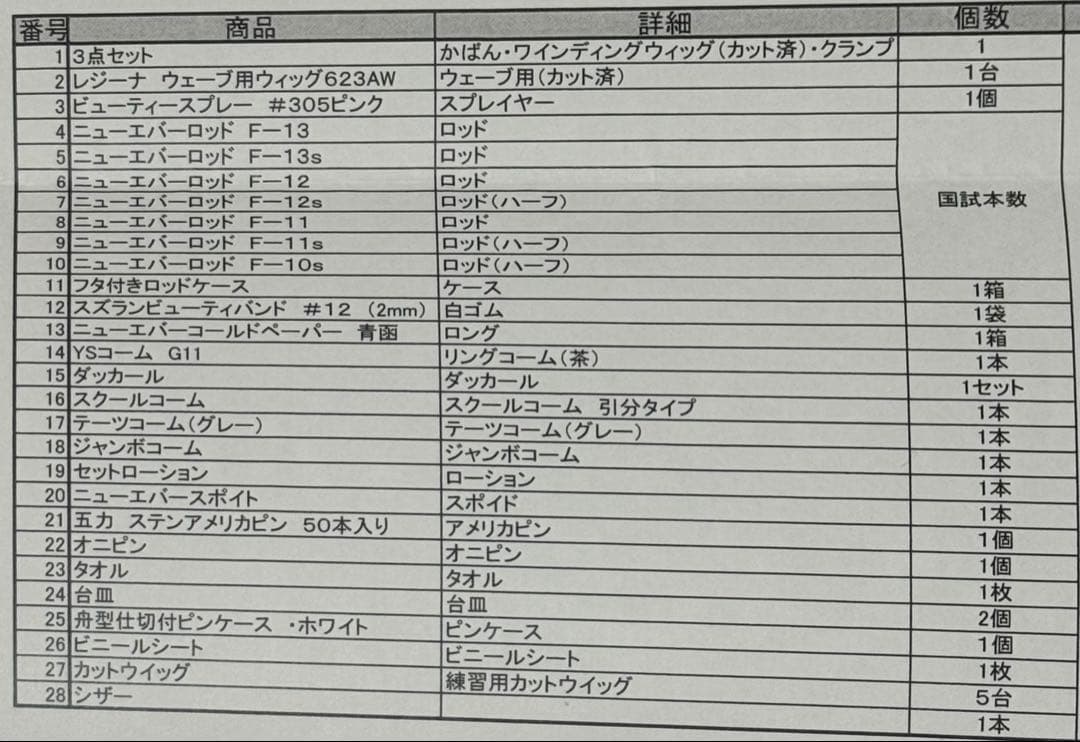 番号 商品 詳細 個数
1 3点セット かばん・ワインディングウィッグ(カット済)・クランプ 1
2 レジーナ ウェーブ用ウィッグ623AW ウェーブ用(カット済) 1台
3 ビューティースプレー #305ピンク スプレイヤー 1個
4 ニューエバーロッド F-13 ロッド
5 ニューエバーロッド F-13s ロッド
6 ニューエバーロッド F-12 ロッド
7 ニューエバーロッド F-12s ロッド(ハーフ) 国試本数
8 ニューエバーロッド F-11 ロッド
9 ニューエバーロッド F-11s ロッド(ハーフ)
10 ニューエバーロッド F-10s ロッド(ハーフ)
11 フタ付きロッドケース ケース 1箱
12 スズランビューティバンド #12 (2mm) 白ゴム 1袋
13 ニューエバーコールドペーパー 青函 ロング 1箱
14 YSコーム G11 リングコーム(茶) 1本
15 ダッカール ダッカール 1セット
16 スクールコーム スクールコーム 引分タイプ 1本
17 テーツコーム(グレー) テーツコーム(グレー) 1本
18 ジャンボコーム ジャンボコーム 1本
19 セットローション ローション 1本
20 ニューエバースポイト スポイド 1本
21 五力 ステンアメリカピン 50本入り アメリカピン 1個
22 オニピン オニピン 1個
23 タオル タオル 1枚
24 台皿 台皿 2個
25 舟型仕切付ピンケース ・ホワイト ピンケース 1個
26 ビニールシート ビニールシート 1枚
27 カットウイッグ 練習用カットウイッグ 5台
28 シザー 1本